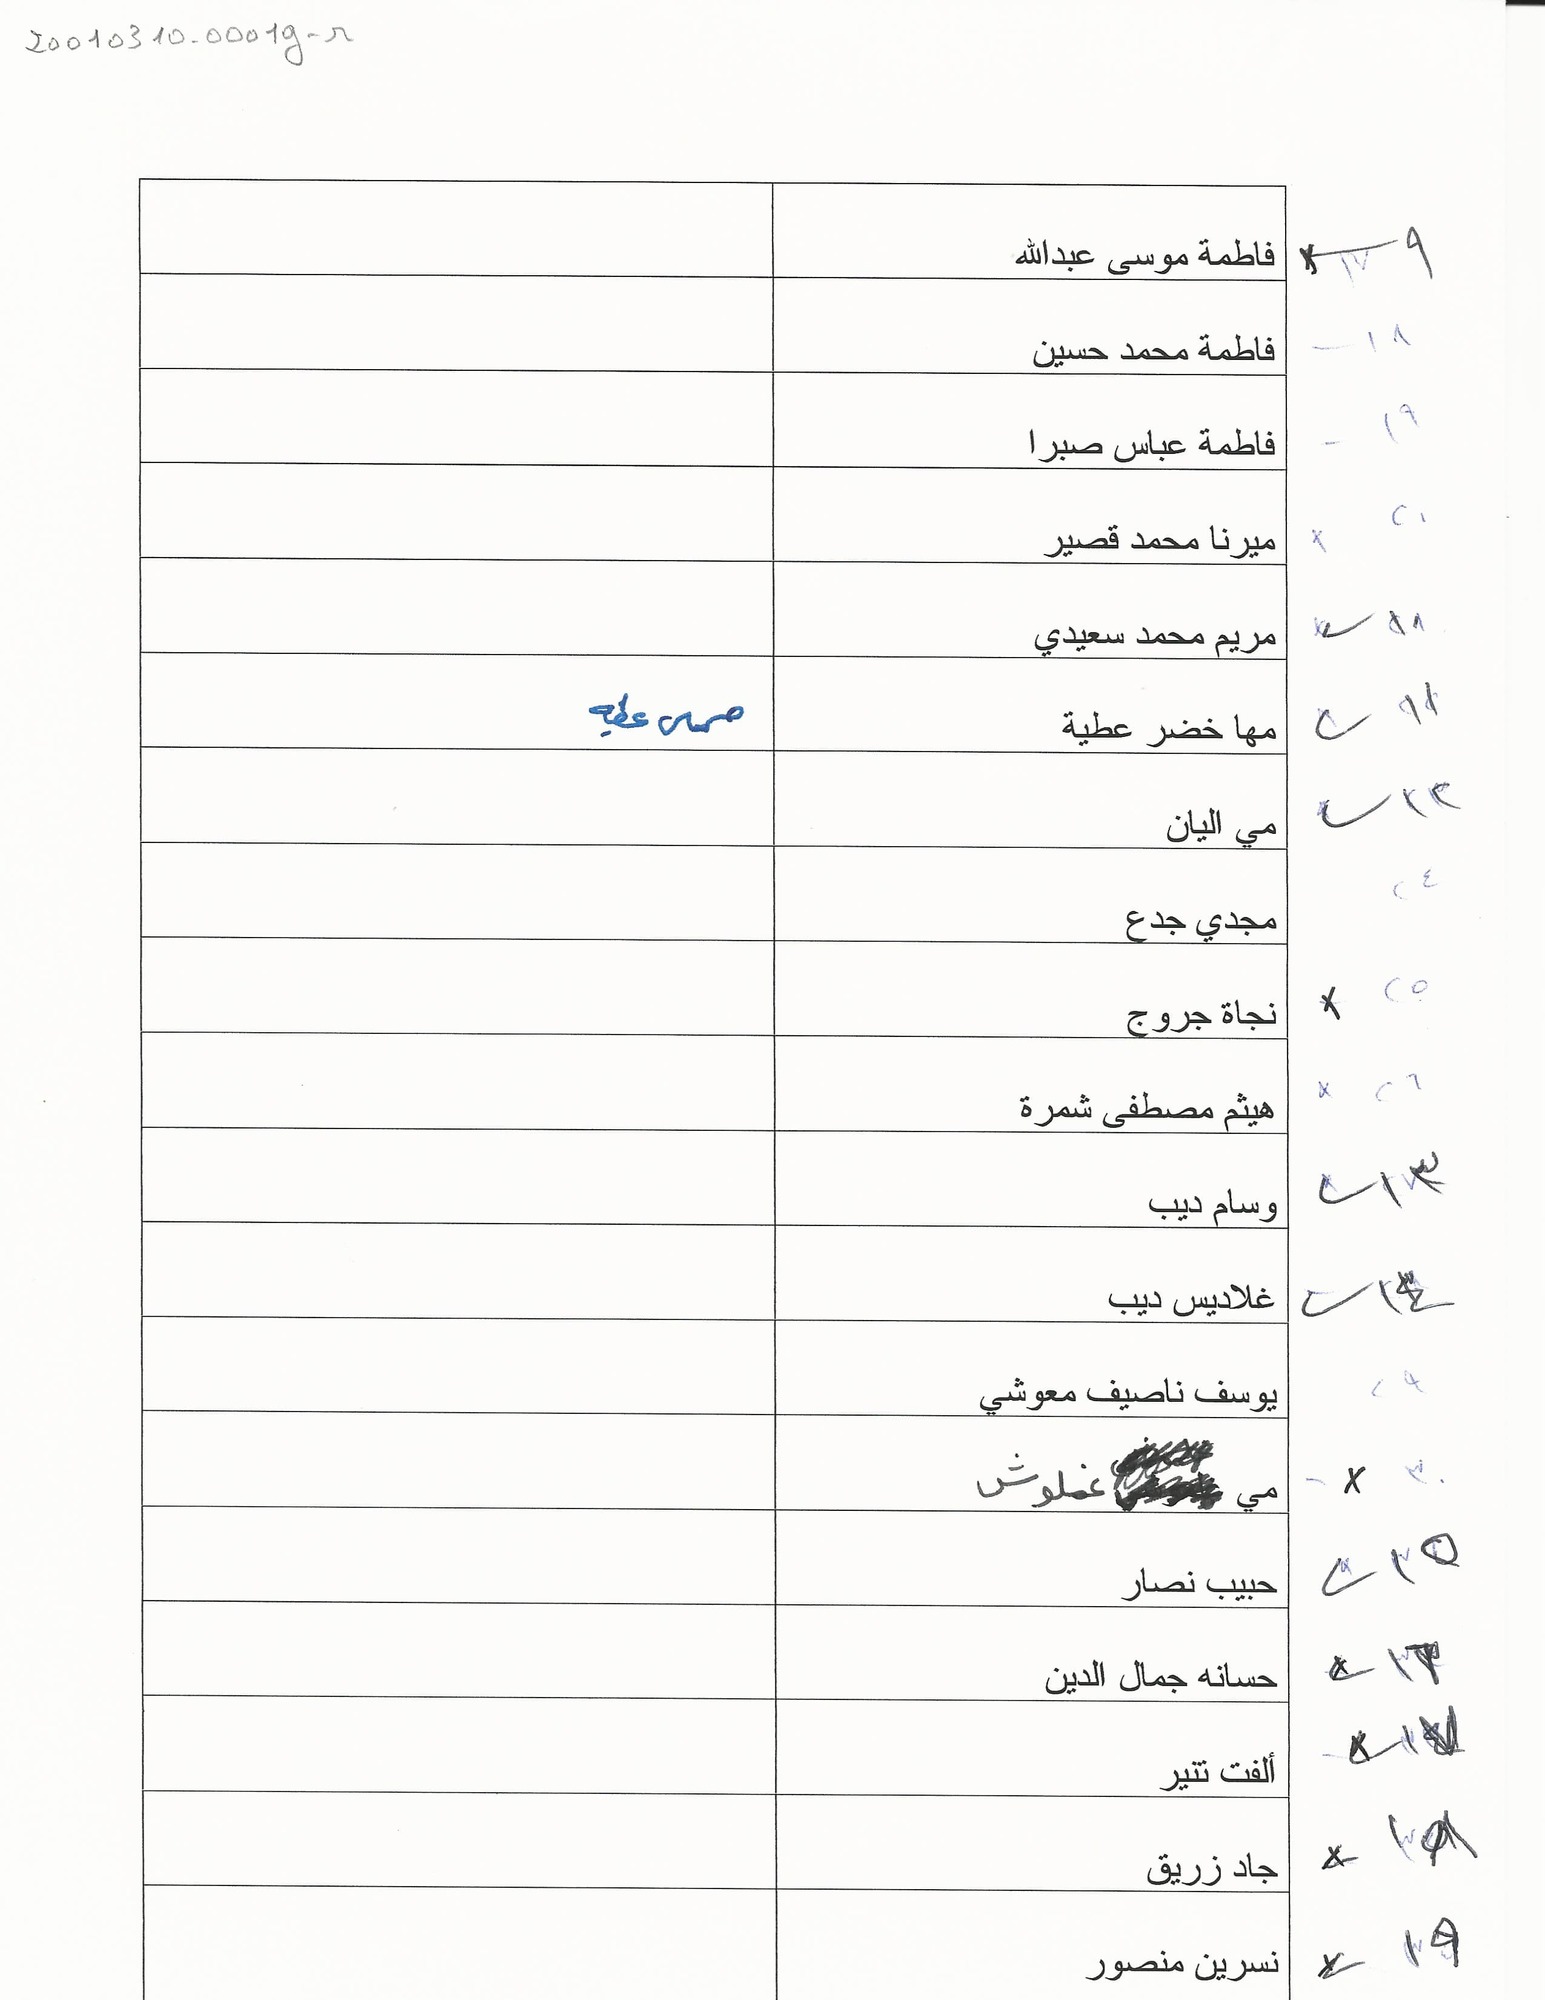 20010310-0001g-r
فاطمة موسى عبدالله ٩
فاطمة محمد حسين ١٨ -
فاطمة عباس صبرا ١٩ -
ميرنا محمد قصير ٢٠ x
مريم محمد سعيدي
مها خضر عطية عطيه
مي اليان
مجدي جدع ٢٤
نجاة جروج ٢٥ x
هيثم مصطفى شمرة ٢٦ x
وسام ديب ١٣
غلاديس ديب ١٤
يوسف ناصيف معوشي ٢٩
مي غملوش ٣٠ x -
حبيب نصار ١٥
حسانه جمال الدين ١٦
ألفت تنير ١٧
جاد زريق ١٨ x
نسرين منصور ١٩ x